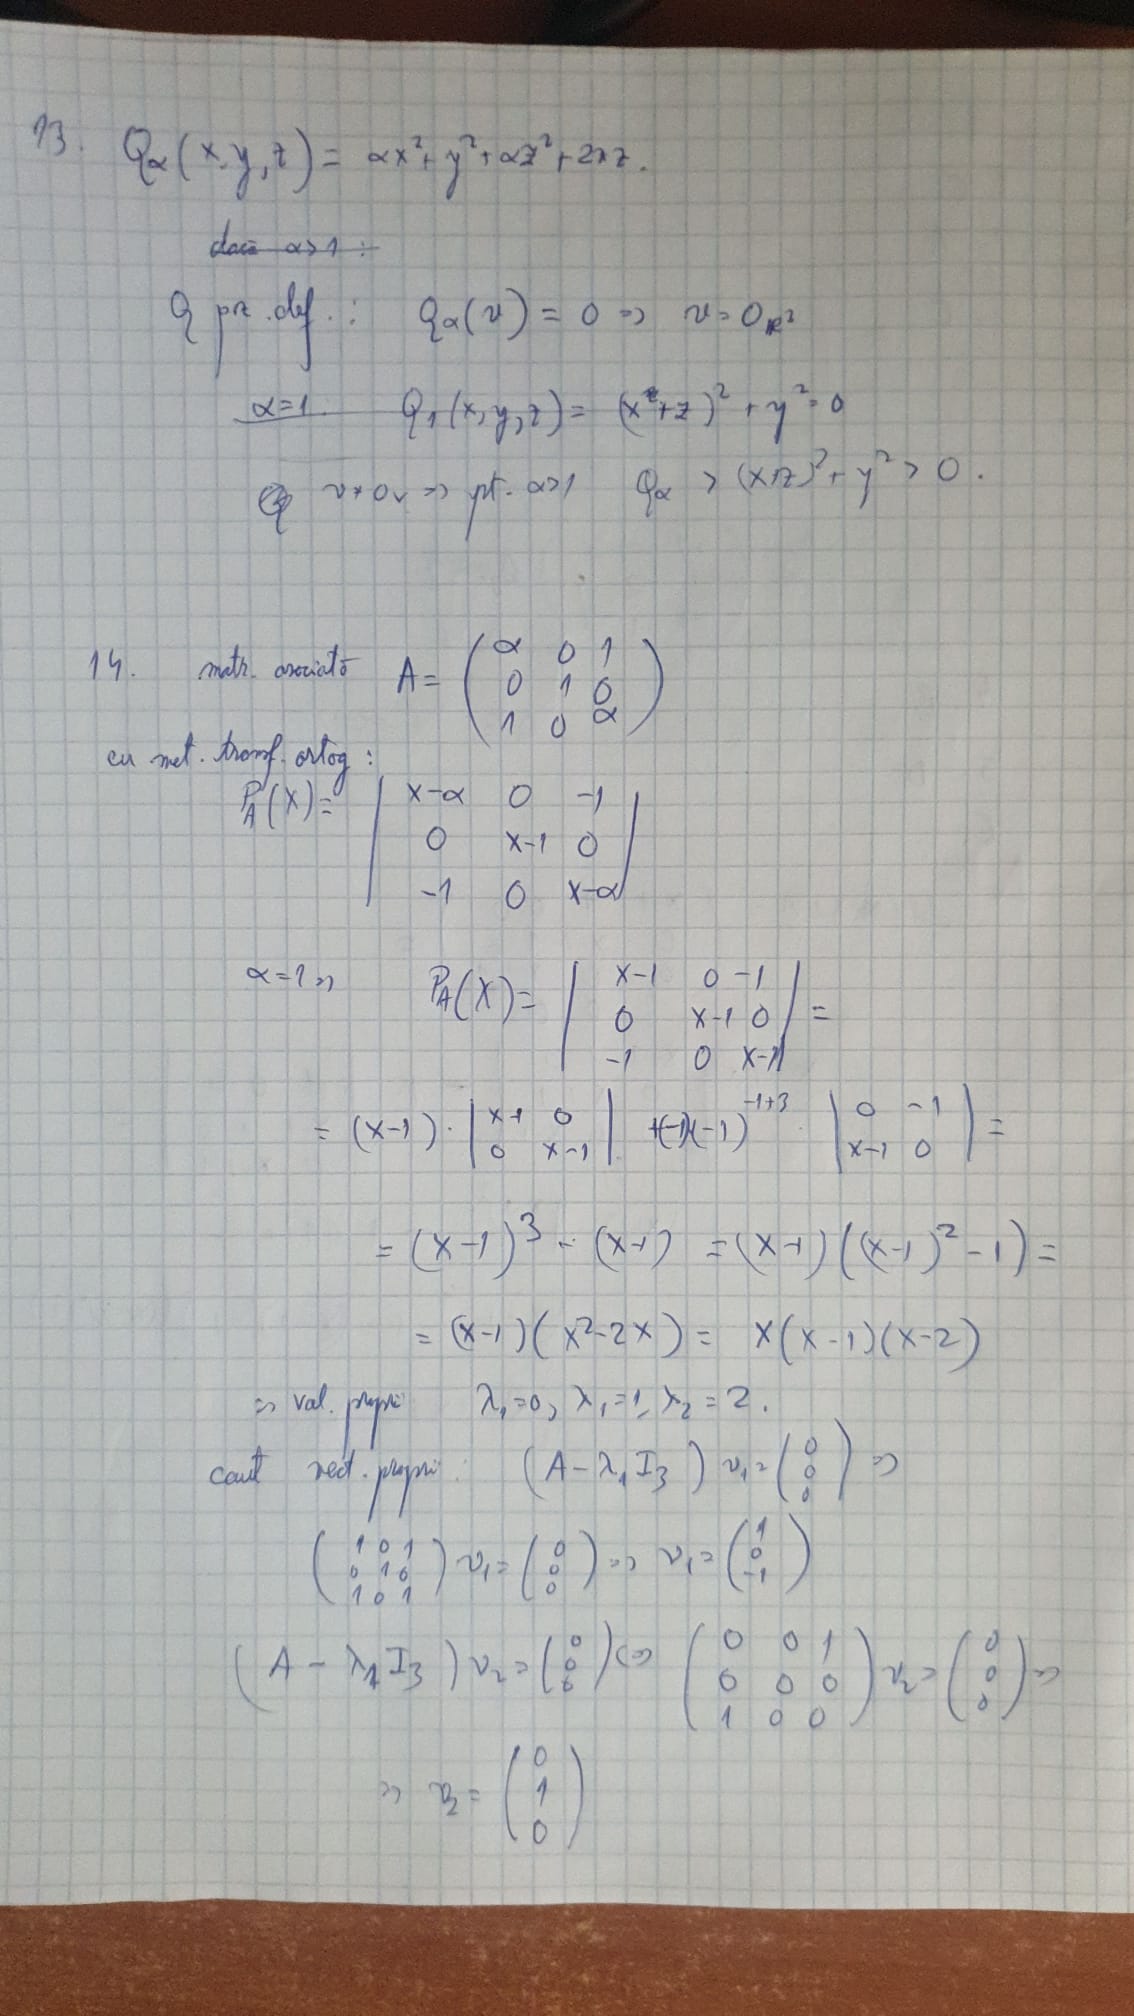 13. Qα(x,y,z) = αx²+y²+αz²+2xz.
dacă α>1 :
Q poz. def. : Qα(v) = 0 => v = 0ℝ³
α=1. Q₁(x,y,z) = (x+z)²+y²=0
v≠0v => pt. α>1 Qα > (x+z)²+y² > 0.
14. matr. asociată A = ( α 0 1
0 1 0
1 0 α )
cu met. transf. ortog :
P_A(X) = | X-α 0 -1
0 X-1 0
-1 0 X-α |
α=1 => P_A(X) = | X-1 0 -1
0 X-1 0
-1 0 X-1 | =
= (X-1) · | X-1 0
0 X-1 | +(-1)(-1)^{1+3} | 0 -1
X-1 0 | =
= (X-1)³ - (X-1) = (X-1)((X-1)²-1) =
= (X-1)(X²-2X) = X(X-1)(X-2)
=> val. proprii λ₁=0, λ₁=1, λ₂=2.
caut vect. proprii : (A-λ₁I₃) v₁=( 0
0
0 ) <=>
( 1 0 1
0 1 0
1 0 1 ) v₁=( 0
0
0 ) => v₁=( 1
0
-1 )
(A-λ₁I₃) v₂=( 0
0
0 ) <=> ( 0 0 1
0 0 0
1 0 0 ) v₂=( 0
0
0 ) =>
=> v₂ = ( 0
1
0 )